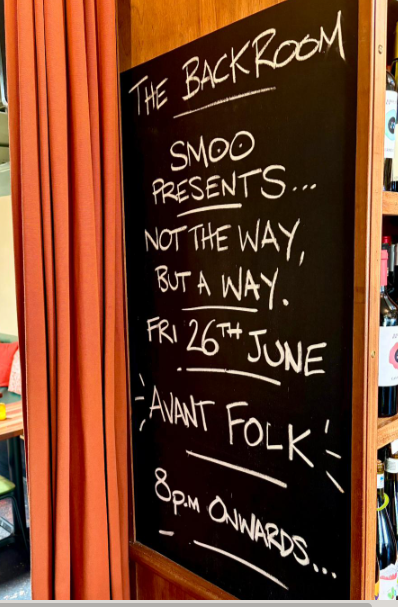 THE BACKROOM
SMOO
PRESENTS...
NOT THE WAY,
BUT A WAY.
FRI 26TH JUNE
AVANT FOLK
8p.m ONWARDS...